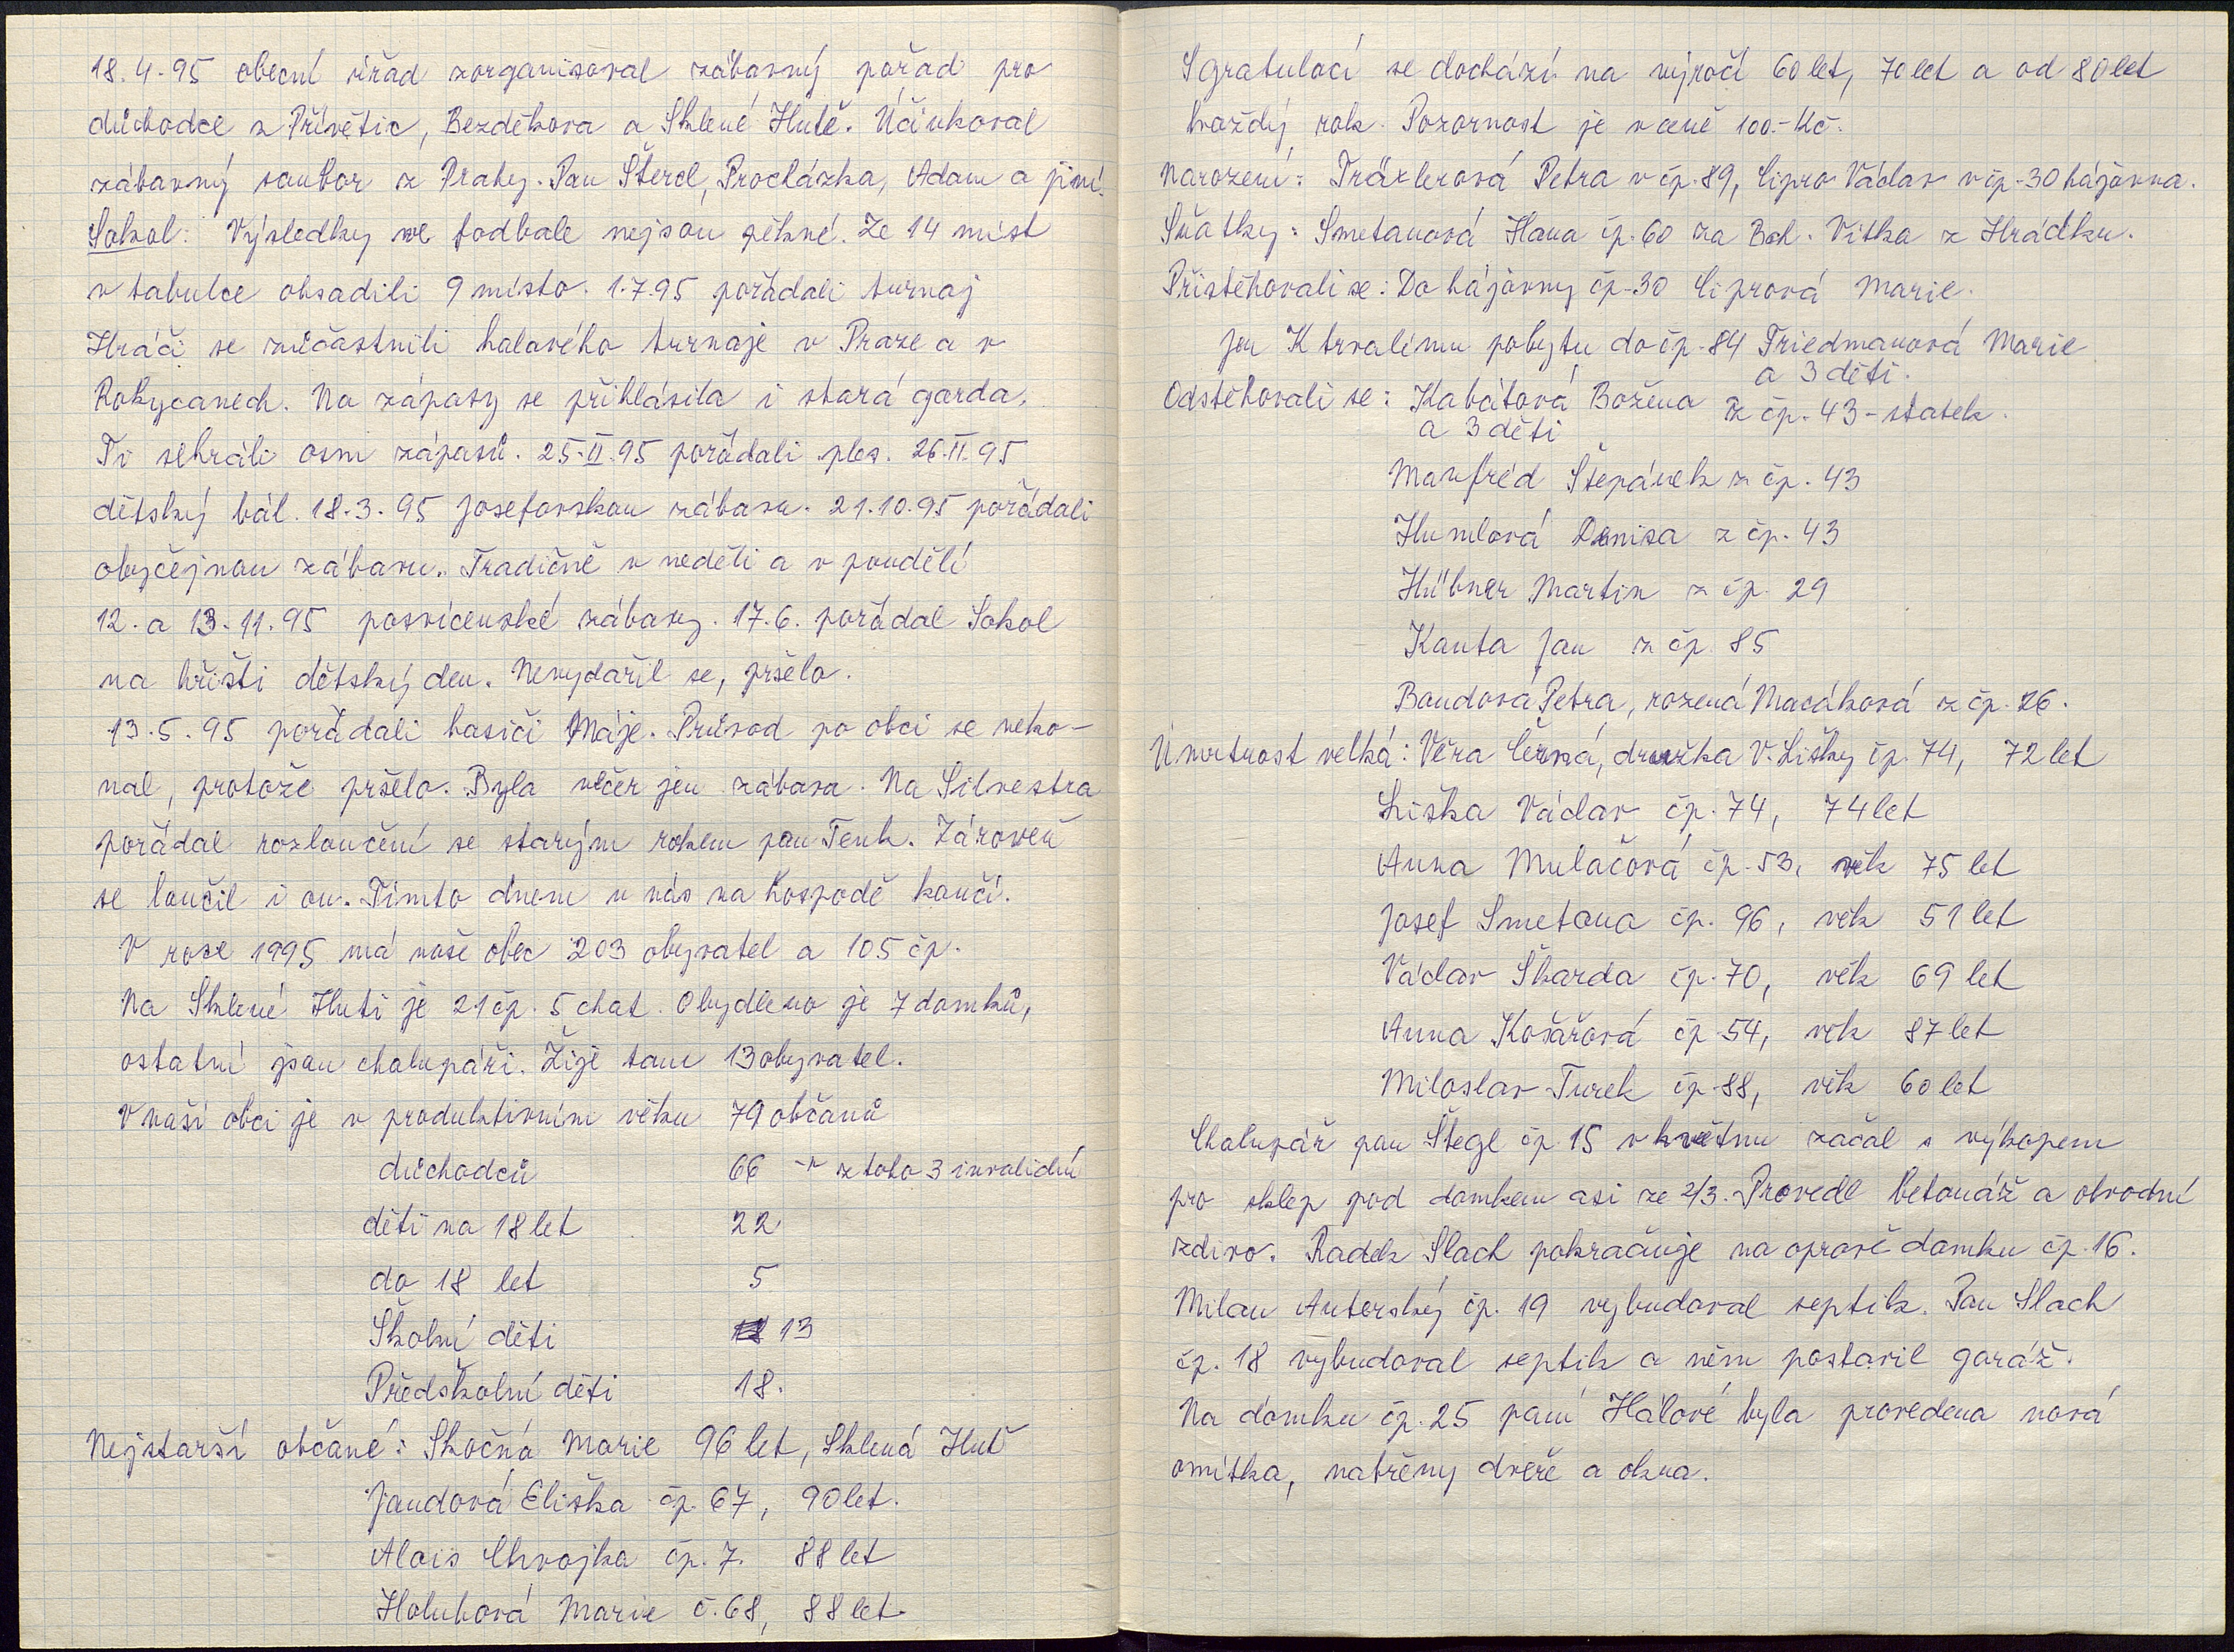 18.4.95 obecní úřad zorganisoval zábavný pořad pro
důchodce z Přívětic, Bezděkova a Sklené Hutě. Účinkoval
zábavný soubor z Prahy. Pan Štercl, Procházka, Adam a jiní.
Sokol: Výsledky ve fodbale nejsou pěkné. Ze 14 míst
v tabulce obsadili 9 místo. 1.7.95 pořádali turnaj
Hráči se zúčastnili halového turnaje v Praze a v
Rokycanech. Na zápasy se přihlásila i stará garda,
Ti sehráli osm zápasů. 25.II.95 pořádali ples. 26.II.95
dětský bál. 18.3.95 Josefovskou zábavu. 21.10.95 pořádali
obyčejnou zábavu. Tradičně v neděli a v pondělí
12. a 13.11.95 posvícenské zábavy. 17.6. pořádal Sokol
na hřišti dětský den. Nevydařil se, pršelo.
13.5.95 pořádali hasiči Máje. Průvod po obci se neko-
nal, protože pršelo. Byla večer jen zábava. Na Silvestra
pořádal rozloučení se starým rokem pan Tenk. Zároveň
se loučil i on. Tímto dnem u nás na hospodě končí.
V roce 1995 má naše obec 203 obyvatel a 105 čp.
Na Sklené Huti je 21 čp. 5 chat. Obydleno je 7 domků,
ostatní jsou chalupáři. Žije tam 13 obyvatel.
V naší obci je v produktivním věku 79 občanů
důchodců 66 - z toho 3 invalidní
děti na 18 let 22
do 18 let 5
Školní děti 13
Předškolní děti 18.
Nejstarší občané: Skočná Marie 96 let, Sklená Huť
Jandová Eliška čp. 67, 90 let.
Alois Chvojka čp. 7. 88 let
Holubová Marie č. 68, 88 let.
S gratulací se dochází na výročí 60 let, 70 let a od 80 let
každý rok. Pozornost je v ceně 100.- Kč.
Narození: Träxlerová Petra v čp. 89, Cipro Václav v čp. 30 hájovna.
Sňatky: Smetanová Hana čp. 60 za Boh. Vítka z Hrádku.
Přistěhovali se: Do hájovny čp. 30 Ciprová Marie.
Jen K trvalímu pobytu do čp. 84 Friedmanová Marie
a 3 děti.
Odstěhovali se: Kabátová Božena z čp. 43 - statek.
a 3 děti
Manfréd Štepánek z čp. 43
Humlová Denisa z čp. 43
Hübner Martin z čp. 29
Kanta Jan z čp 85
Bandová Petra, rozená Macáková z čp. 26.
Úmrtnost velká: Věra Černá, družka V. Lišky čp. 74, 72 let
Liška Václav čp. 74, 74 let
Anna Mulačová čp. 53, věk 75 let
Josef Smetana čp. 96, věk 51 let
Václav Škarda čp. 70, věk 69 let
Anna Košařová čp. 54, věk 87 let
Miloslav Turek čp. 88, věk 60 let
Chalupář pan Štegl čp 15 v květnu začal s výkopem
pro sklep pod domkem asi ze 2/3. Provedl betonáž a obvodní
zdivo. Radek Slach pokračuje na opravě domku čp. 16.
Milan Anterský čp. 19 vybudoval septik. Pan Slach
čp. 18 vybudoval septik a něm postavil garáž.
Na domku čp. 25 paní Hálové byla provedena nová
omítka, natřeny dveře a okna.